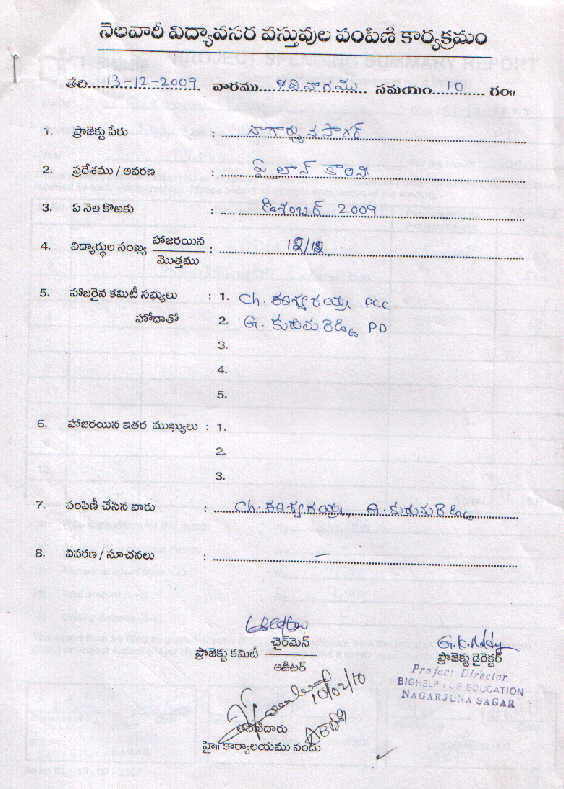 నెలవారీ విద్యావసర వస్తువుల పంపిణీ కార్యక్రమం
తేది 13-12-2009 వారము ఆదివారము సమయం 10 గం॥
1. ప్రాజెక్టు పేరు : నాగార్జునసాగర్
2. ప్రదేశము / ఆవరణ : పైలాన్ కాలని
3. ఏ నెల కొఱకు : డిశంబర్ 2009
4. విద్యార్థుల సంఖ్య హాజరయిన / మొత్తము :
5. హాజరైన కమిటీ సభ్యులు : 1. Ch.
హోదాతో 2. G. PD
3.
4.
5.
6. హాజరయిన ఇతర ముఖ్యులు : 1.
2.
3.
7. పంపిణీ చేసిన వారు : Ch. G.
8. వివరణ / సూచనలు : –
ప్రాజెక్టు కమిటీ చైర్‌మెన్ / ఆడిటర్
G.K. Reddy
ప్రాజెక్టు డైరెక్టర్
Project Director
BIGHELP FOR EDUCATION
NAGARJUNA SAGAR
10/02/10
హై॥ కార్యాలయము నందు